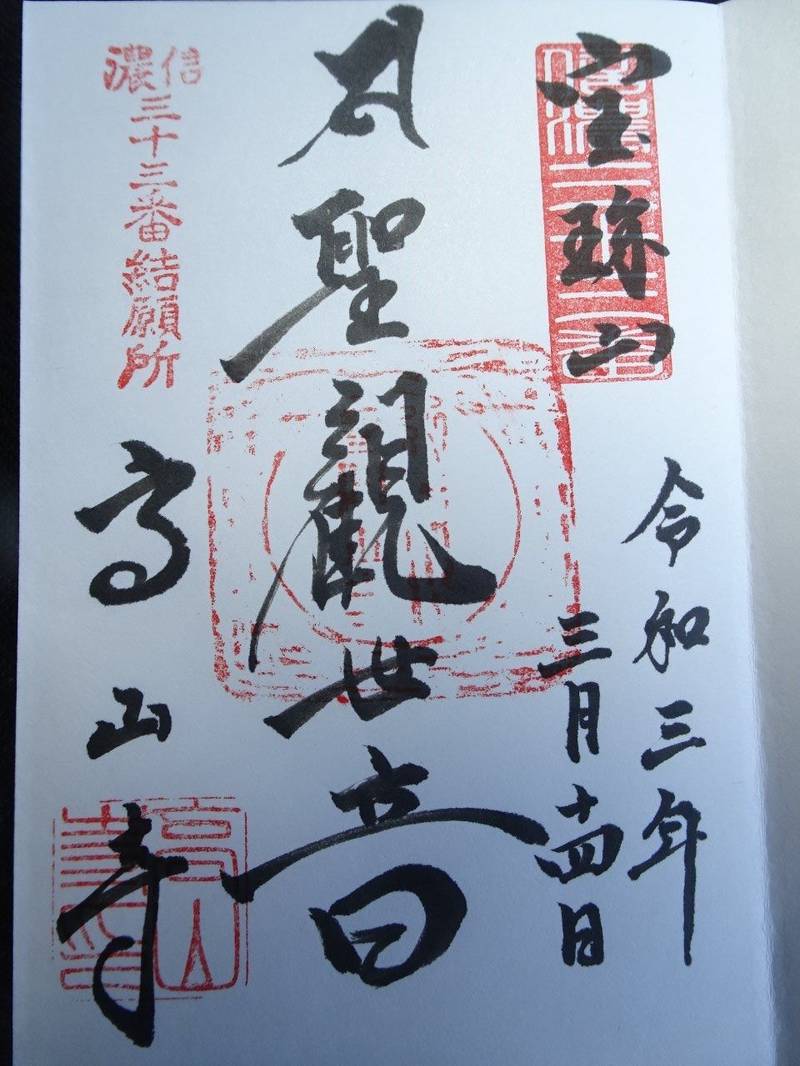 宝珠山
令和三年
三月十四日
聖観世音
高山寺
信濃三十三番結願所
高山